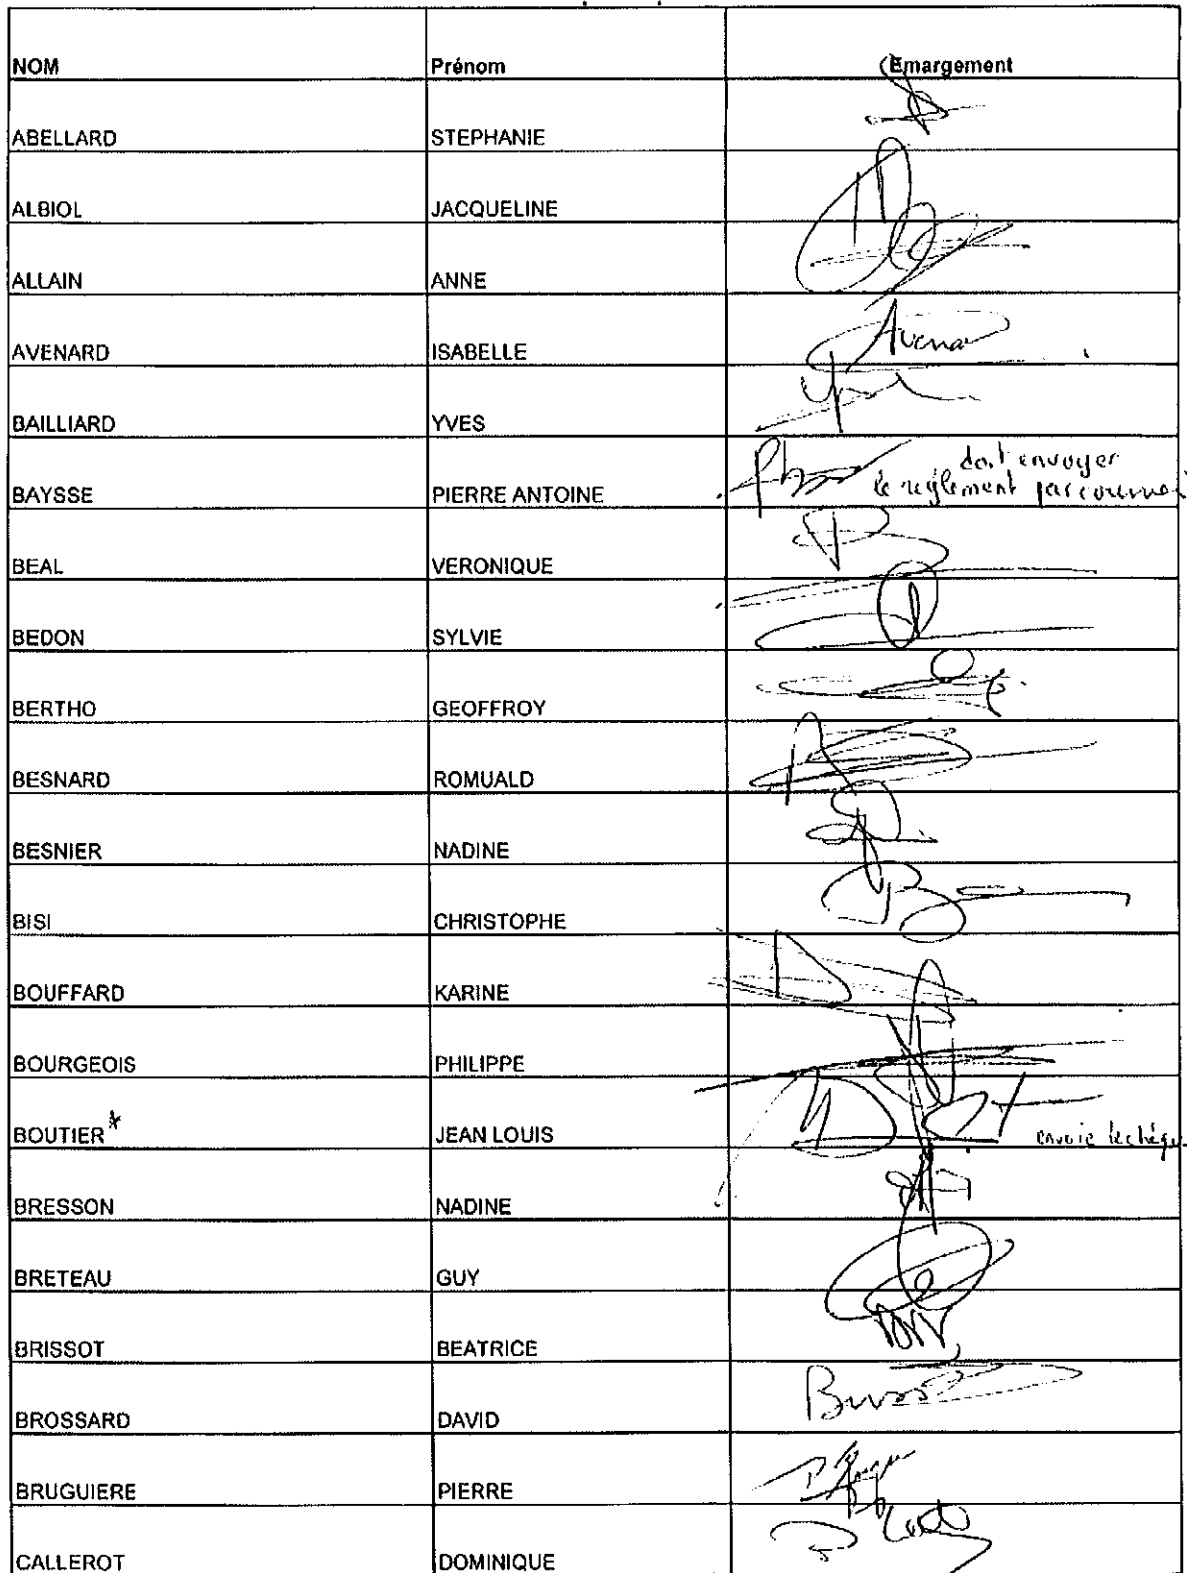 NOM Prénom Emargement
ABELLARD STEPHANIE
ALBIOL JACQUELINE
ALLAIN ANNE
AVENARD ISABELLE Avenard
BAILLIARD YVES
doit envoyer
BAYSSE PIERRE ANTOINE le règlement par courrier
BEAL VERONIQUE
BEDON SYLVIE
BERTHO GEOFFROY
BESNARD ROMUALD
BESNIER NADINE
BISI CHRISTOPHE
BOUFFARD KARINE
BOURGEOIS PHILIPPE
BOUTIER* JEAN LOUIS envoie le chèque
BRESSON NADINE
BRETEAU GUY
BRISSOT BEATRICE
BROSSARD DAVID
BRUGUIERE PIERRE
CALLEROT DOMINIQUE